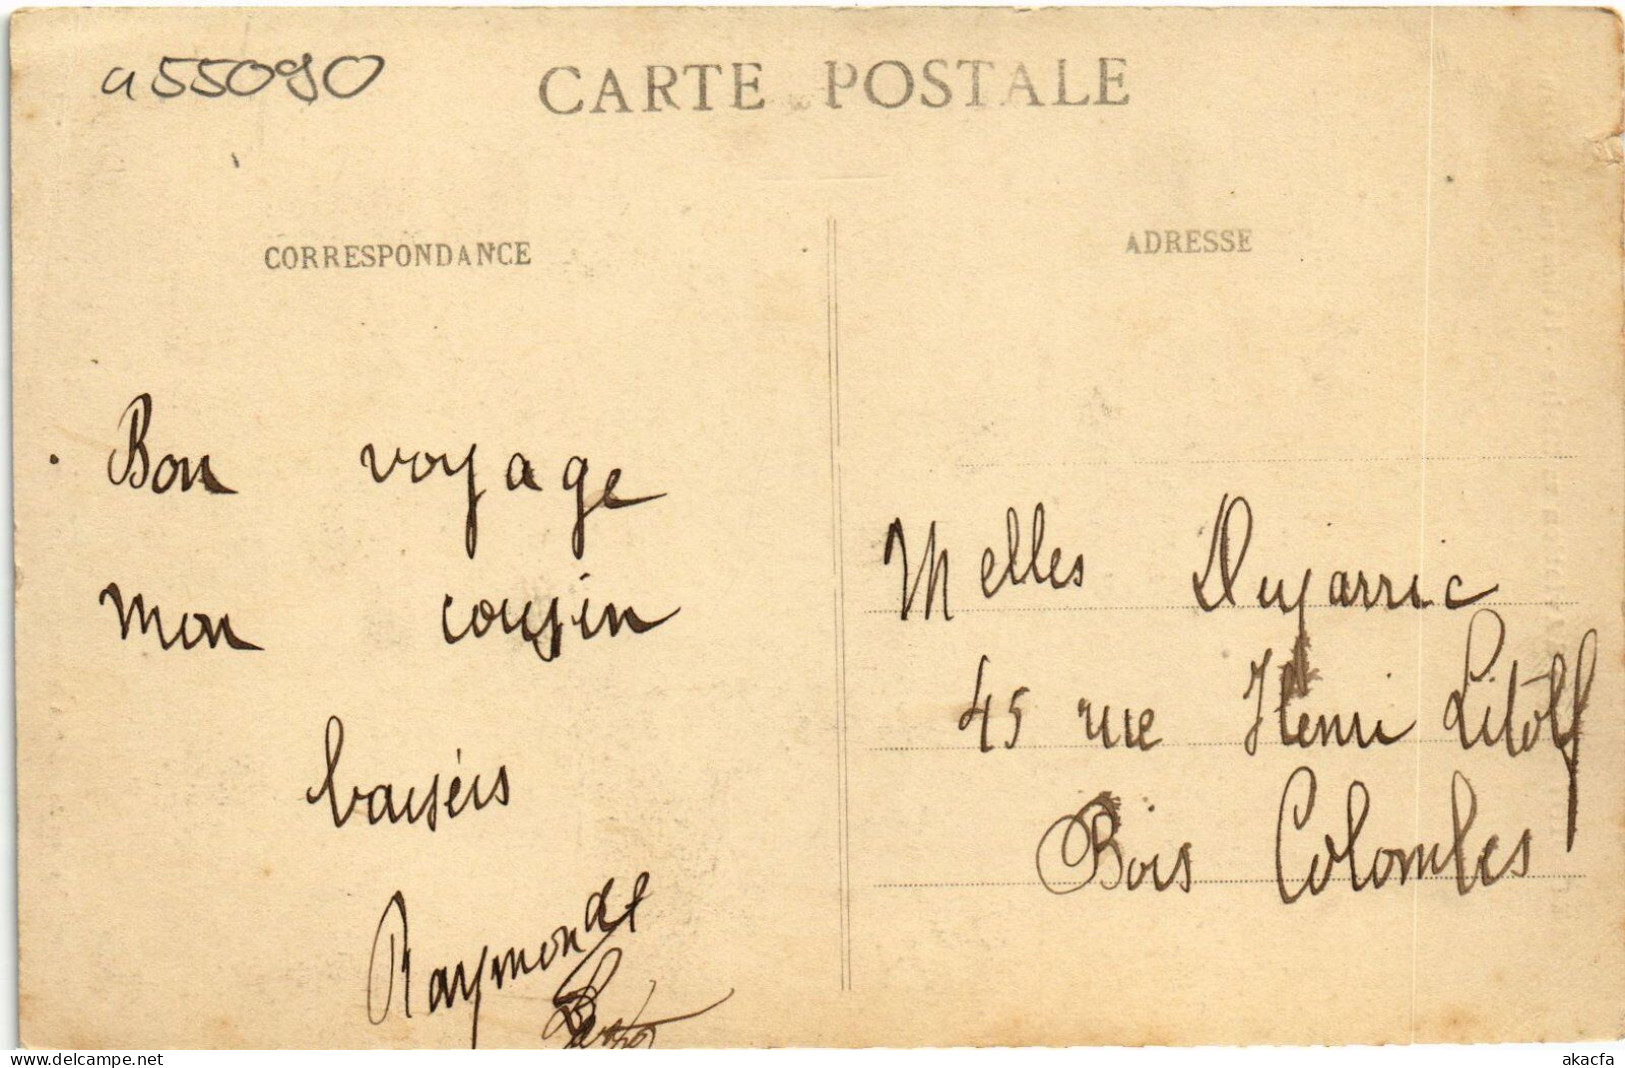 a55090
CARTE POSTALE
CORRESPONDANCE
ADRESSE
Bon voyage
mon cousin
baisers
Raymonde
Melles Dujarric
45 rue Henri Litolf
Bois Colombes
www.delcampe.net
akacfa